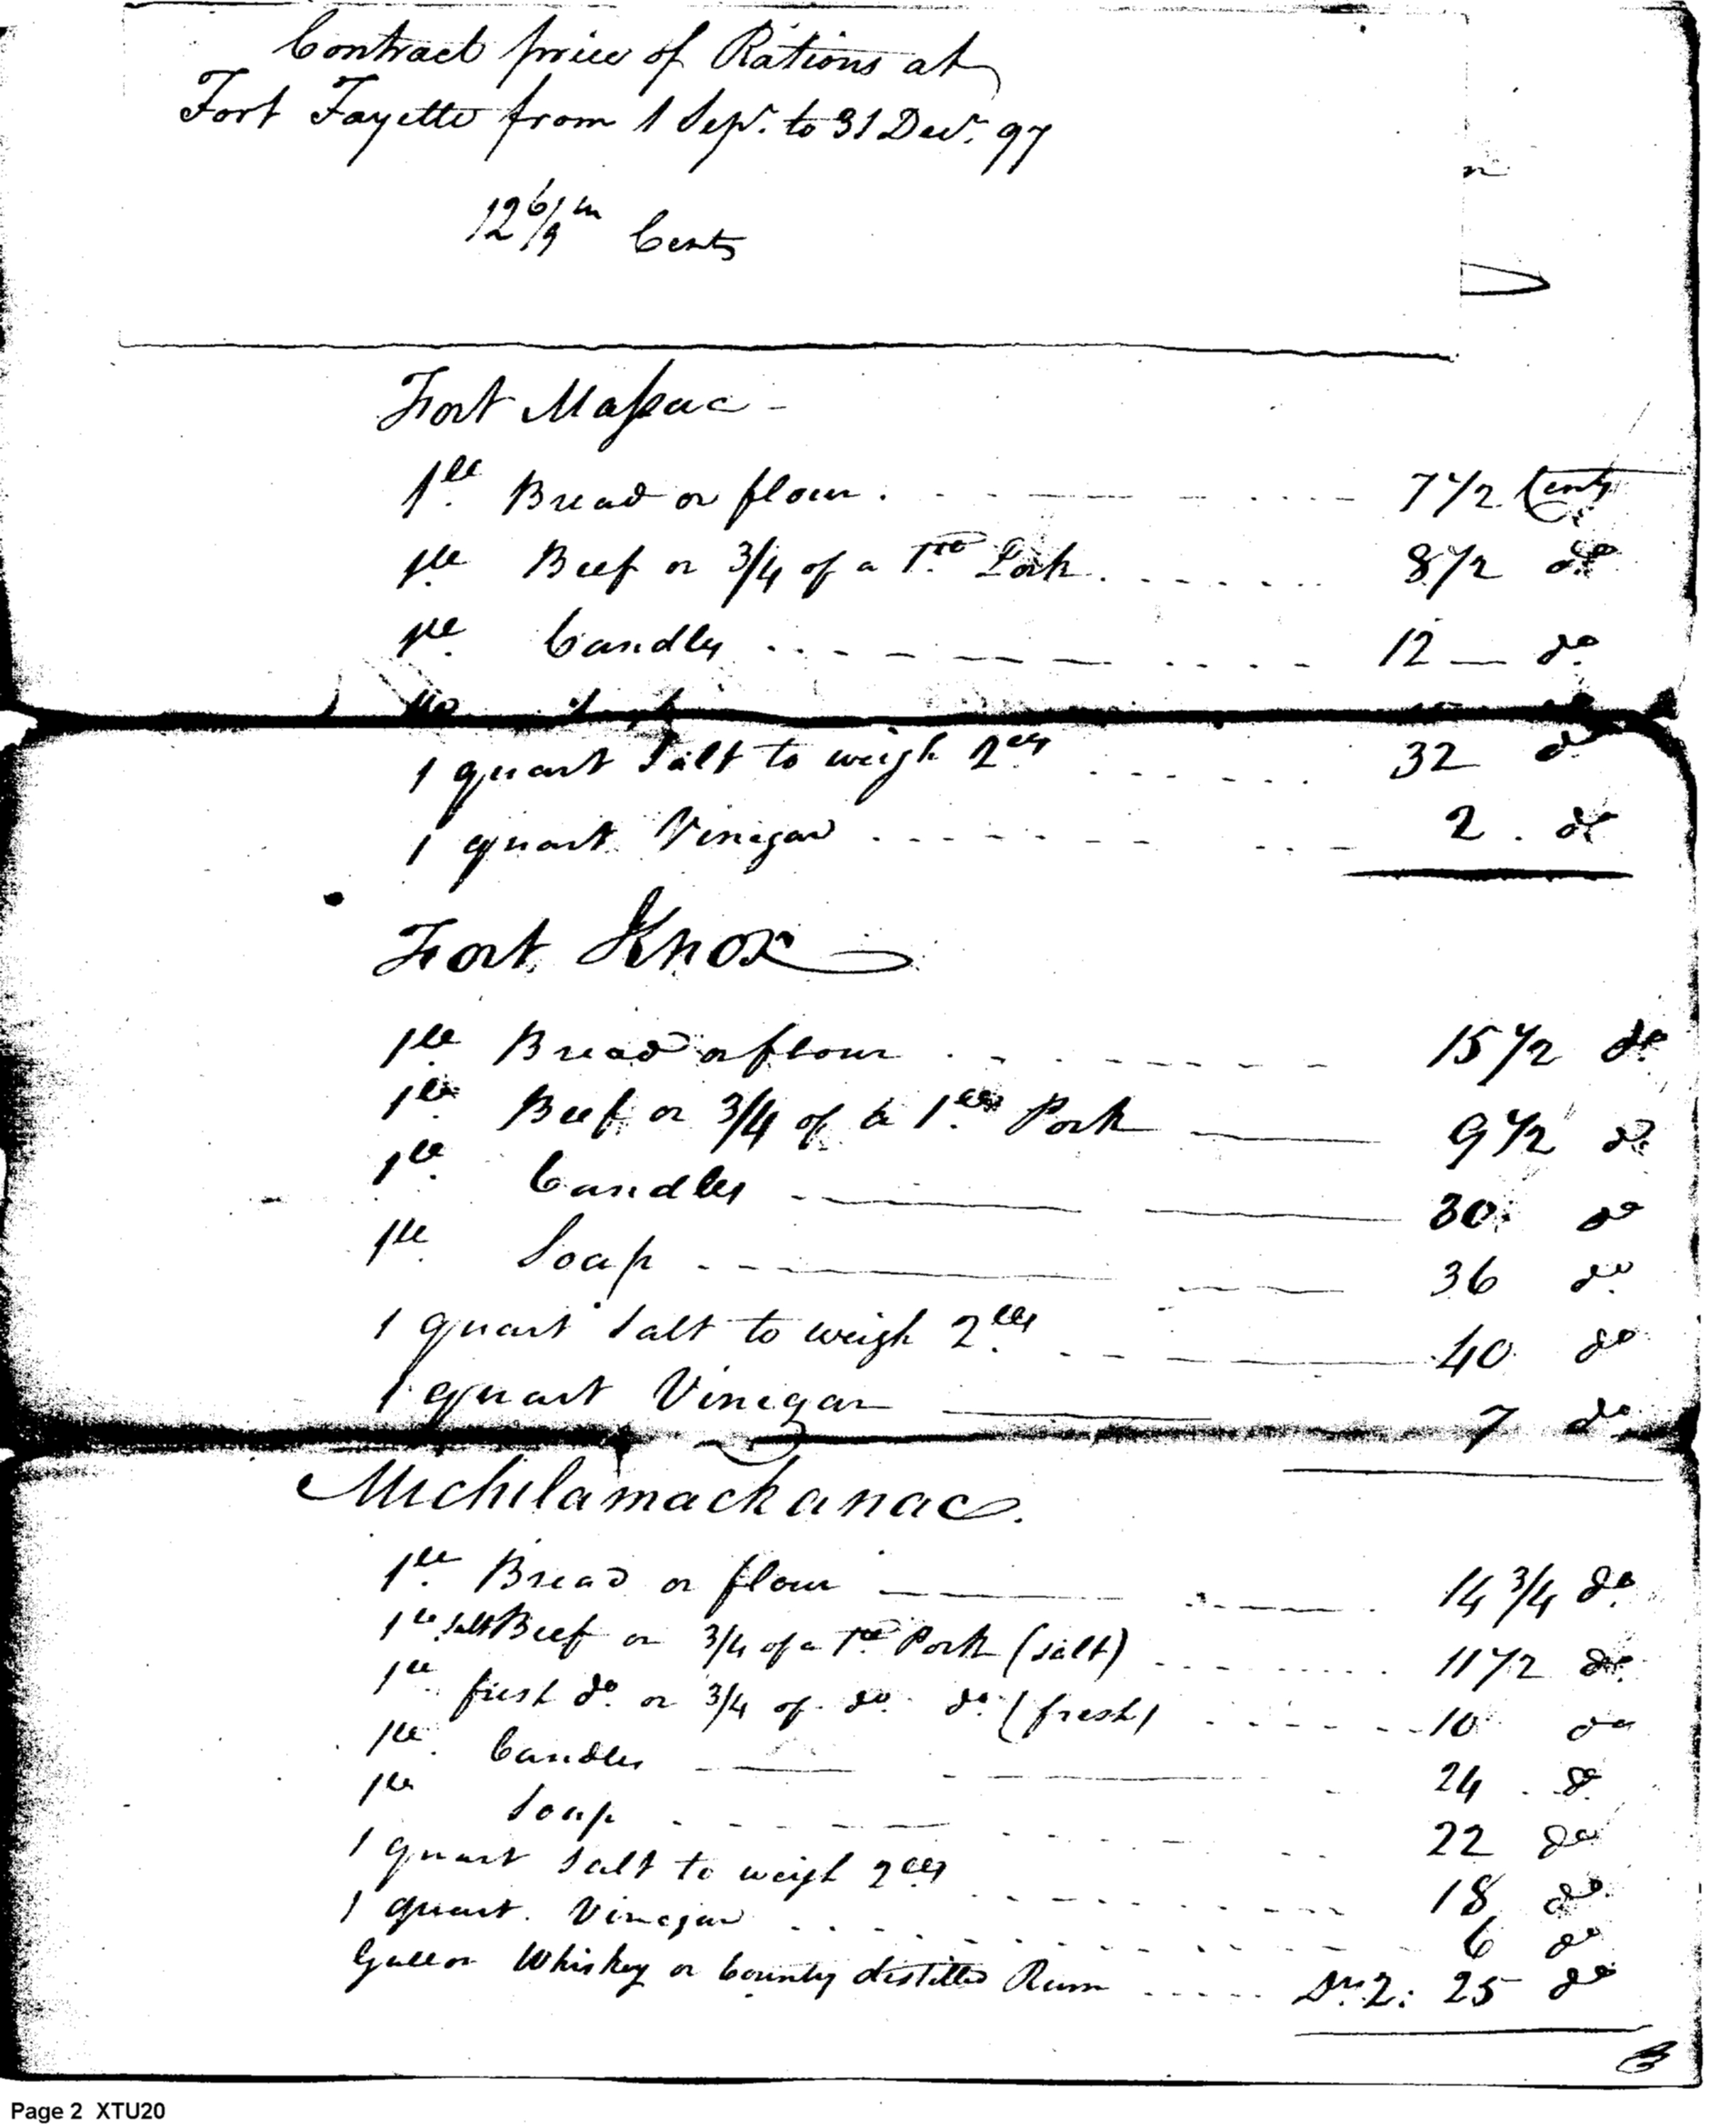 Contract price of Rations at
Fort Fayette from 1 Sepr. to 31 Decr. 97
12 6/9 m Cents
Fort Massac -
1 lb Bread or flour . . . . 7 1/2 Cents
1 lb Beef or 3/4 of a lb Pork . . . . 8 1/2 do
1 lb Candles . . . . 12 — do
1 quart Salt to weigh 2 lbs . . . . 32 do
1 quart Vinegar . . . . 2 . do
Fort Knox
1 lb Bread or flour . . . . 15 1/2 do
1 lb Beef or 3/4 of a 1 lb Pork —— 9 1/2 do
1 lb Candles —— 30 do
1 lb Soap —— 36 do
1 quart Salt to weigh 2 lbs —— 40 do
1 quart Vinegar —— 7 do
Michilamackanac.
1 lb Bread or flour —— 14 3/4 do
1 lb Salt Beef or 3/4 of a 1 lb Pork (Salt) . . . . 11 1/2 do
1 lb fresh do. or 3/4 of do. do. (fresh) . . . . 10 do
1 lb Candles —— 24 . do
1 lb Soap . . . . 22 do
1 quart Salt to weigh 2 lbs . . . . 18 do
1 quart. Vinegar . . . . 6 do
Gallon Whiskey or Country distilled Rum . . . . Drs. 2: 25 do
Page 2 XTU20